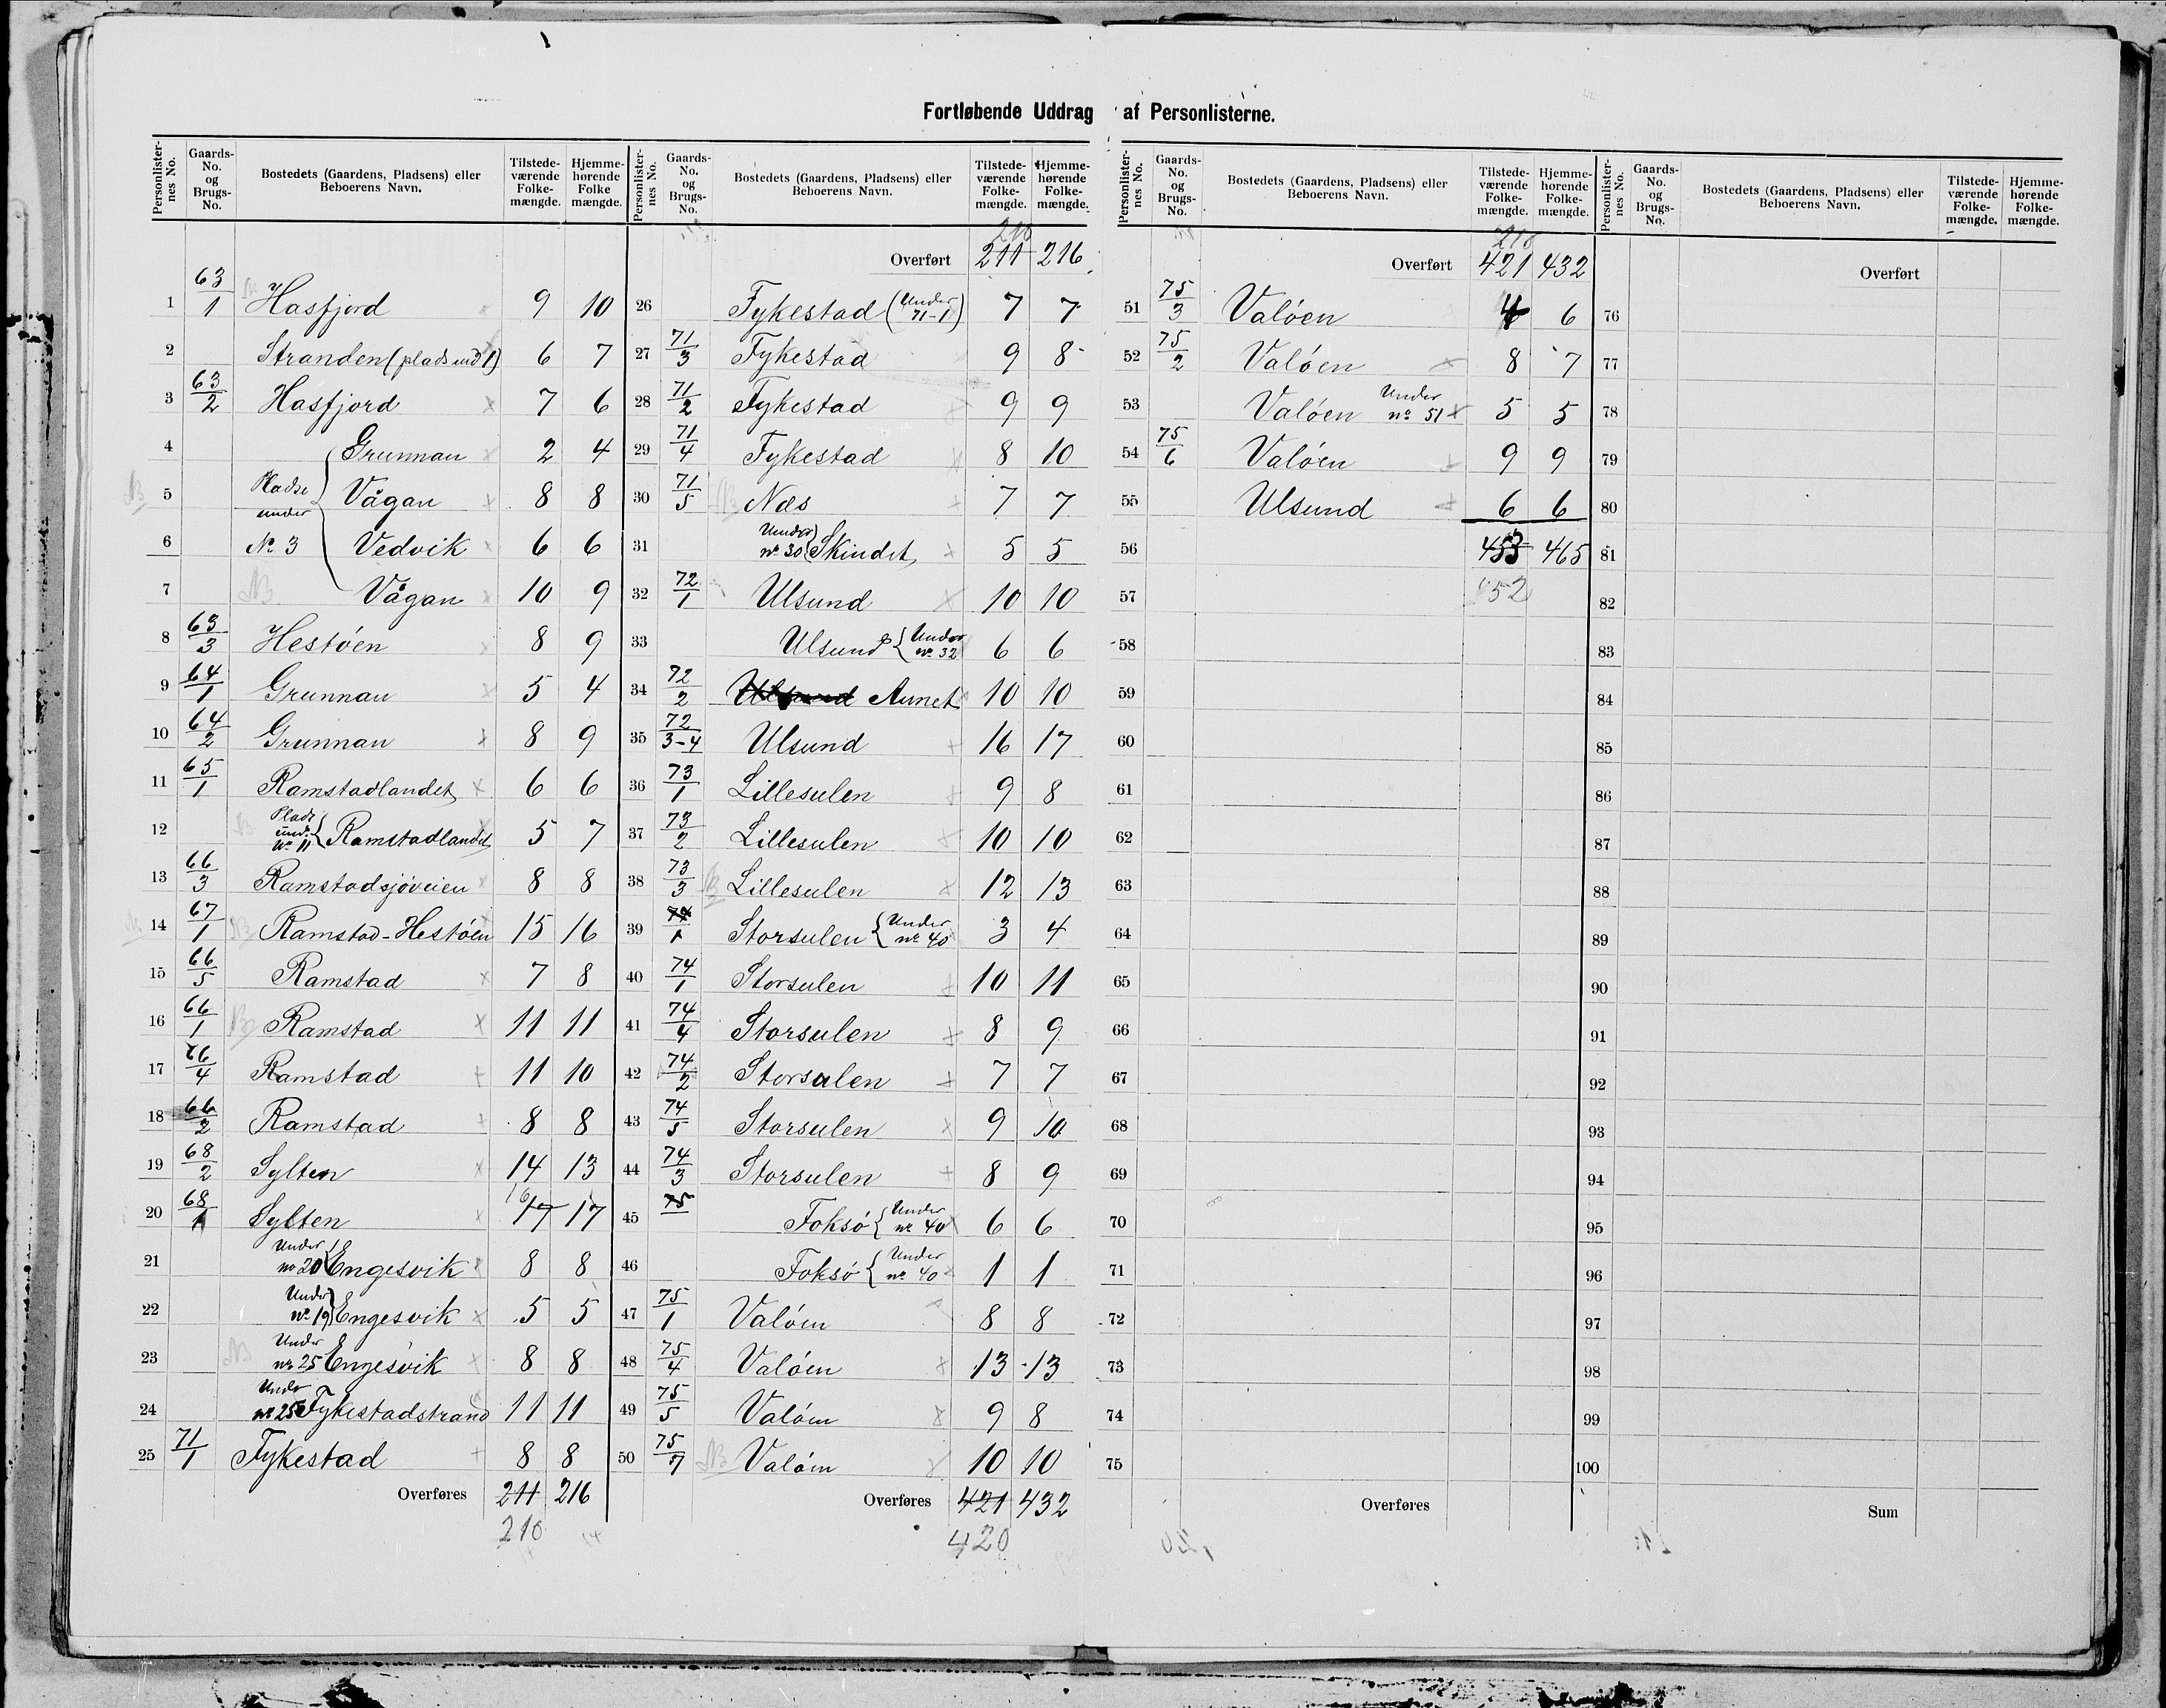 Fortløbende Uddrag af Personlisterne.
Personlisternes No. | Gaards-No. og Brugs-No. | Bostedets (Gaardens, Pladsens) eller Beboerens Navn. | Tilstedeværende Folkemængde. | Hjemmehørende Folkemængde.
1 | 63/1 | Hasfjord | 9 | 10
2 | Stranden (plads und 1) | 6 | 7
3 | 63/2 | Hasfjord | 7 | 6
4 | Pladse under No 3 { Grunnan | 2 | 4
5 | Vågan | 8 | 8
6 | Vedvik | 6 | 6
7 | Vågan | 10 | 9
8 | 63/3 | Hestöen | 8 | 9
9 | 64/1 | Grunnan | 5 | 4
10 | 64/2 | Grunnan | 8 | 9
11 | 65/1 | Ramstadlandet | 6 | 6
12 | Plads und. No 11 { Ramstadlandet | 5 | 7
13 | 66/3 | Ramstadsjöveien | 8 | 8
14 | 67/1 | Ramstad-Hestöen | 15 | 16
15 | 66/5 | Ramstad | 7 | 8
16 | 66/1 | Ramstad | 11 | 11
17 | 66/4 | Ramstad | 11 | 10
18 | 66/2 | Ramstad | 8 | 8
19 | 68/2 | Sylten | 14 | 13
20 | 68/1 | Sylten | 16 17 | 17
21 | Under no 20 { Engesvik | 8 | 8
22 | Under No 19 } Engesvik | 5 | 5
23 | Under nr 25 Engesvik | 8 | 8
24 | Under nr 25 Fykestadstrand | 11 | 11
25 | 71/1 | Fykestad | 8 | 8
Overføres | 211 | 216
210
Overført | 210 211 | 216
26 | Fykestad (Under 71-1) | 7 | 7
27 | 71/3 | Fykestad | 9 | 8
28 | 71/2 | Fykestad | 9 | 9
29 | 71/4 | Fykestad | 8 | 10
30 | 71/5 | Næs | 7 | 7
31 | Under No 30 { Skindet | 5 | 5
32 | 72/1 | Ulsund | 10 | 10
33 | Ulsund { Under No 32 | 6 | 6
34 | 72/2 | Ulsund Aunet | 10 | 10
35 | 72/3-4 | Ulsund | 16 | 17
36 | 73/1 | Lillesulen | 9 | 8
37 | 73/2 | Lillesulen | 10 | 10
38 | 73/3 | Lillesulen | 12 | 13
39 | 74/1 | Storsulen { Under nr 40 | 3 | 4
40 | 74/1 | Storsulen | 10 | 11
41 | 74/4 | Storsulen | 8 | 9
42 | 74/2 | Storsulen | 7 | 7
43 | 74/5 | Storsulen | 9 | 10
44 | 74/3 | Storsulen | 8 | 9
45 | 75 | Foksö { Under nr 40 | 6 | 6
46 | Foksö { Under nr 40 | 1 | 1
47 | 75/1 | Valöen | 8 | 8
48 | 75/4 | Valöen | 13 | 13
49 | 75/5 | Valöen | 9 | 8
50 | 75/7 | Valöen | 10 | 10
Overføres | 421 | 432
420
Overført | 421 | 432
51 | 75/3 | Valöen | 4 | 6
52 | 75/2 | Valöen | 8 | 7
53 | Valöen Under nr 51 | 5 | 5
54 | 75/6 | Valöen | 9 | 9
55 | Ulsund | 6 | 6
56 | 453 | 465
57 | 452
58
59
60
61
62
63
64
65
66
67
68
69
70
71
72
73
74
75
Overføres
Overført
76
77
78
79
80
81
82
83
84
85
86
87
88
89
90
91
92
93
94
95
96
97
98
99
100
Sum